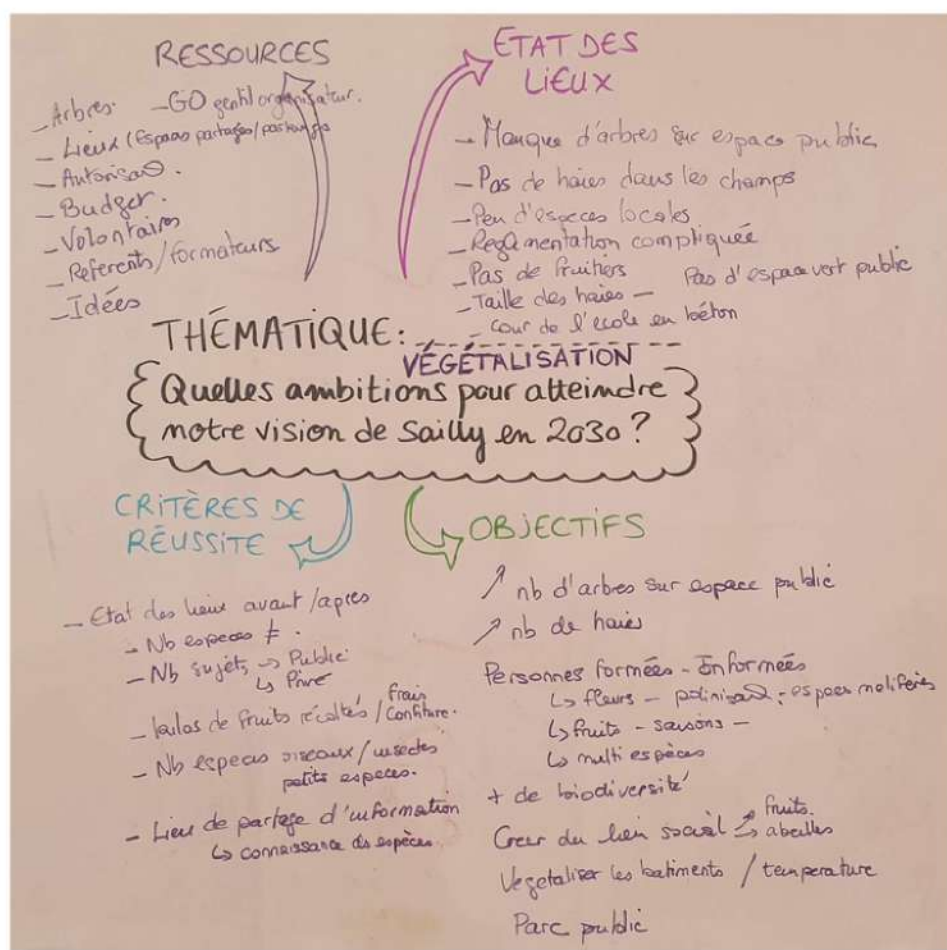 RESSOURCES
_Arbres. _GO gentil organisateur.
_Lieux (Espaces partagés/
_Autorisa°.
_Budget.
_Volontaires
_Referents/formateurs
_Idées
ETAT DES
LiEUX
_Manque d'arbres sur espace public
_Pas de haies dans les champs
_Peu d'especes locales
_Reglementation compliquée
_Pas de fruitiers Pas d'espace vert public
_Taille des haies _
_cour de l'ecole en béton
THÉMATIQUE:
VÉGÉTALISATION
Quelles ambitions pour atteindre
notre vision de Sailly en 2030?
CRITÈRES DE
RÉUSSITE
_Etat des lieux avant/apres
_Nb especes ≠.
_Nb sujets → Public
↳ Privé
_kilos de fruits récoltés/frais
confiture.
_Nb especes oiseaux/insectes
petits especes.
_Lieu de partage d'information
↳ connaissance des espèces.
OBJECTIFS
↗ nb d'arbres sur espace public
↗ nb de haies
Personnes formées - Informées
↳ fleurs - espaces meliferes
↳ fruits - saisons -
↳ multi espèces
+ de biodiversité
Creer du lien social → fruits.
→ abeilles
Vegetaliser les batiments / temperature
Parc public